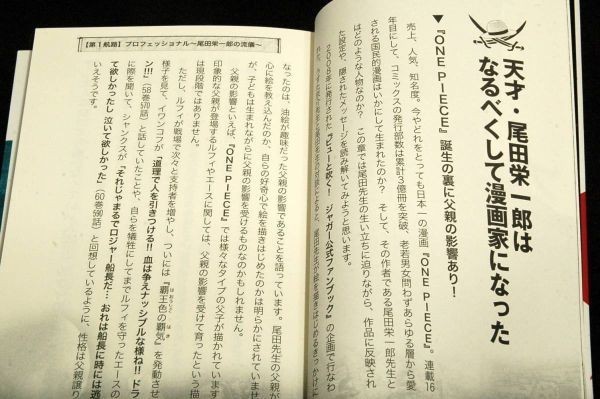 天才・尾田栄一郎は
なるべくして漫画家になった
▼『ONE PIECE』誕生の裏に父親の影響あり！
売上、人気、知名度。今やどれをとっても日本一の漫画『ONE PIECE』。連載16
年目にして、コミックスの発行部数は累計3億冊を突破、老若男女問わずあらゆる層から愛
される国民的漫画はいかにして生まれたのか？ そして、その作者である尾田栄一郎先生と
はどのような人物なのか？ この章では尾田先生の生い立ちに迫りながら、作品に反映され
た設定や、隠されたメッセージを読み解いてみようと思います。
2008年に発行された『ピューと吹く！ジャガー公式ファンブック』の企画で行なわ
尾田先生が絵を描きはじめるきっかけに
【第1航路】プロフェッショナル〜尾田栄一郎の流儀〜
なったのは、油絵が趣味だった父親の影響であることを語っています。尾田先生の父親が
心に絵を教え込んだのか、自らの好奇心で絵を描きはじめたのかは明らかにされていませ
んが、子どもは生まれながらに父親の影響を受けるものなのかもしれません。
父親の影響といえば、『ONE PIECE』では様々なタイプの父子が描かれています
印象的な父親が登場するルフィやエースに関しては、父親の影響を受けて育ったという描
は現段階ではありません。
ただし、ルフィが戦場で次々と支持者を増やし、ついには『覇王色の覇気』を発動させ
様子を見て、イワンコフが「道理で人を引きつける!! 血は争えナッシブルな様ね!! ドラ
ン!!!」（58巻570話）と話していたことや、自らを犠牲にしてまでルフィを守ったエースの
に際を聞いて、シャンクスが「それじゃまるでロジャー船長だ…おれは船長に時には逃
て欲しかったし 泣いて欲しかった」（60巻590話）と回想しているように、性格は父親譲り
いえそうです。